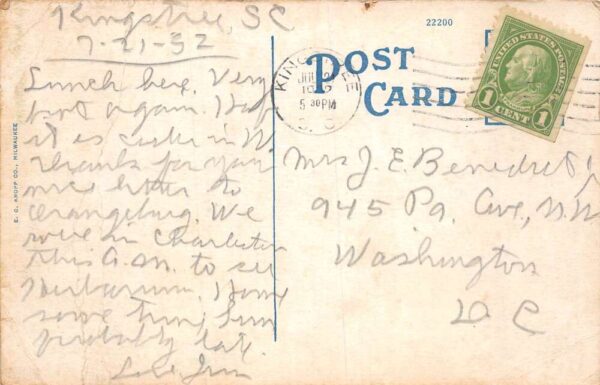 Kingstree, SC
7-21-32
Lunch here. Very
hot again. Hope
it is cooler in W.
Thanks for your
nice letter to
Orangeburg. We
were in Charleston
this A.M. to see
Herbarium. Home
some time Sun
probably late.
Love Jim
E. C. KROPP CO., MILWAUKEE
22200
POST
CARD
KINGSTREE
5 30 PM
S. C.
UNITED STATES POSTAGE
1 CENT 1
Mrs J. E. Benedict
945 Pa. Ave, N.W
Washington
D C